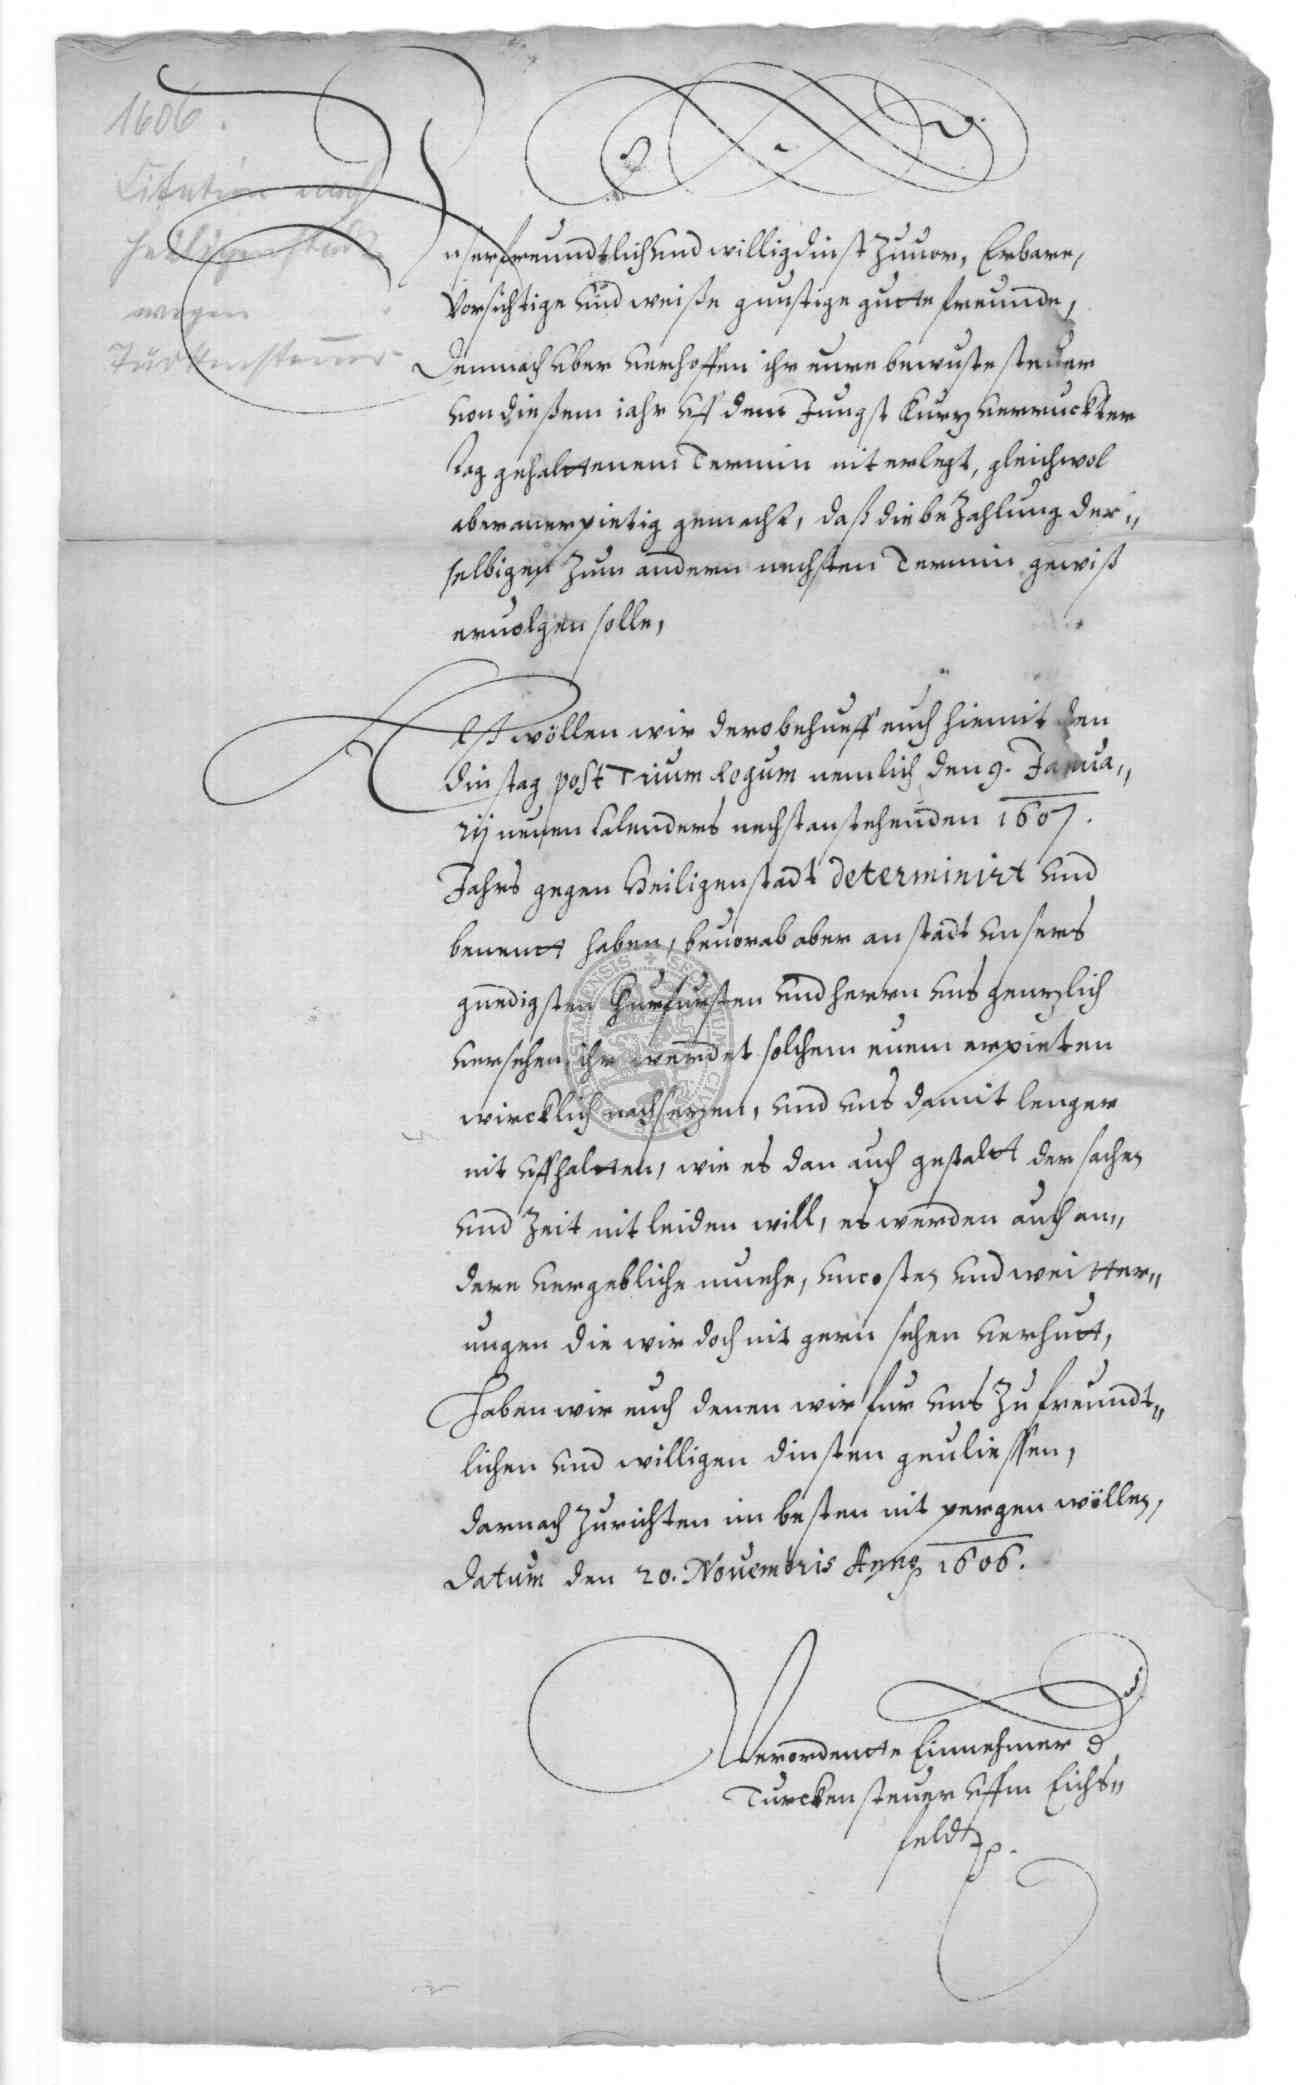 1606.
Citation nach
Heiligenstadt
wegen
Türkensteuer
Unser freundtlich und willig dinst zuuor, Erbare,
Vorsichtige und weiße gunstige gutte freunde,
Demnach uber verhoffen ihr eure bewuste steuer
von dießem iahr uff dem Jungst kurtz verruckter
tag gehalttenem Termin nit erlegt, gleichwol
aber anerpietig gemacht, daß die bezahlung der„
selbigen zum andern nechsten Termin gewiß
eruolgen solle,
Alß wöllen wir dero behueff euch hiemit den
dinstag post Trium Regum nemlich den 9. Janua„
rij neuen Calenders nechstanstehenden 1607.
Jahrs gegen Heiligenstadt determinirt und
benent haben, beuorab aber anstadt unsers
gnedigsten Churfursten und herrn uns gentzlich
versehen, ihr werdet solchem eurem erpieten
wircklich nachsetzen, und uns damit lenger
nit uffhaltten, wie es dan auch gestalt der sachen
und Zeit nit leiden will, es werden auch an„
dere vergebliche muehe, uncosten und weitter„
ungen die wir doch nit gern sehen verhut,
Haben wir euch denen wir fur uns zu freundt„
lichen und willigen dinsten geuliessen,
darnach zurichten im besten nit pergen wöllen,
Datum den 20. Nouembris Anno 1606.
Verordente Einnehmer d
Turckensteuer uffm Eichs„
feldt